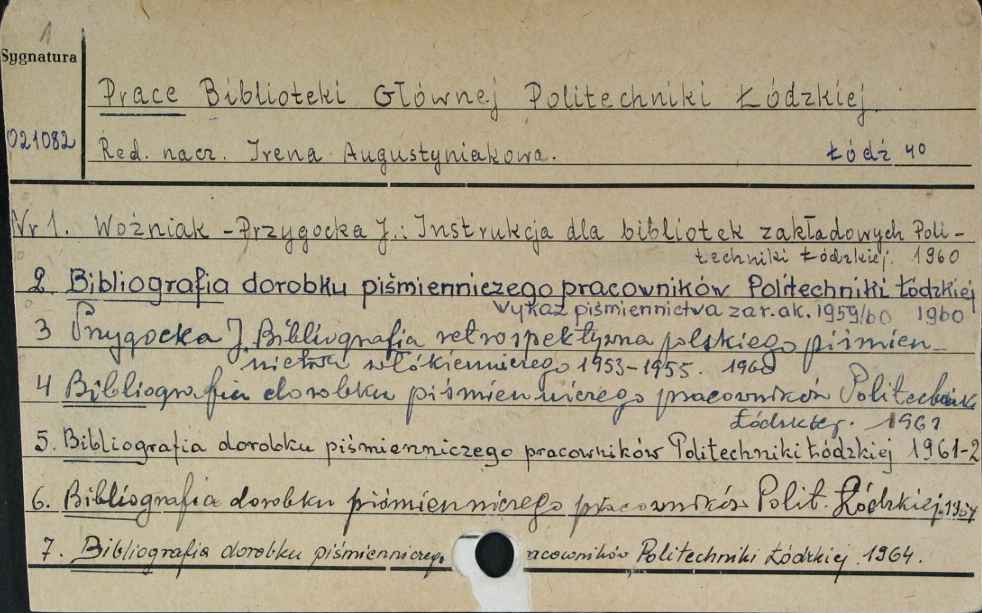 1
Sygnatura
Prace Biblioteki Głównej Politechniki Łódzkiej.
021082
Red. nacz. Irena Augustyniakowa. Łódź 40
Nr 1. Woźniak - Przygocka J.: Instrukcja dla bibliotek zakładowych Poli-
techniki Łódzkiej. 1960
2. Bibliografia dorobku piśmienniczego pracowników Politechniki Łódzkiej
Wykaz piśmiennictwa za r. ak. 1959/60 1960
3 Przygocka J. Bibliografia retrospektywna polskiego piśmien-
nictwa włókienniczego 1953-1955. 1960
4 Bibliografia dorobku piśmienniczego pracowników Politechnik
Łódzkiej. 1961
5. Bibliografia dorobku piśmienniczego pracowników Politechniki Łódzkiej 1961-2
6. Bibliografia dorobku piśmienniczego pracowników Polit. Łódzkiej.
7. Bibliografia dorobku piśmienniczego racowników Politechniki Łódzkiej. 1964.